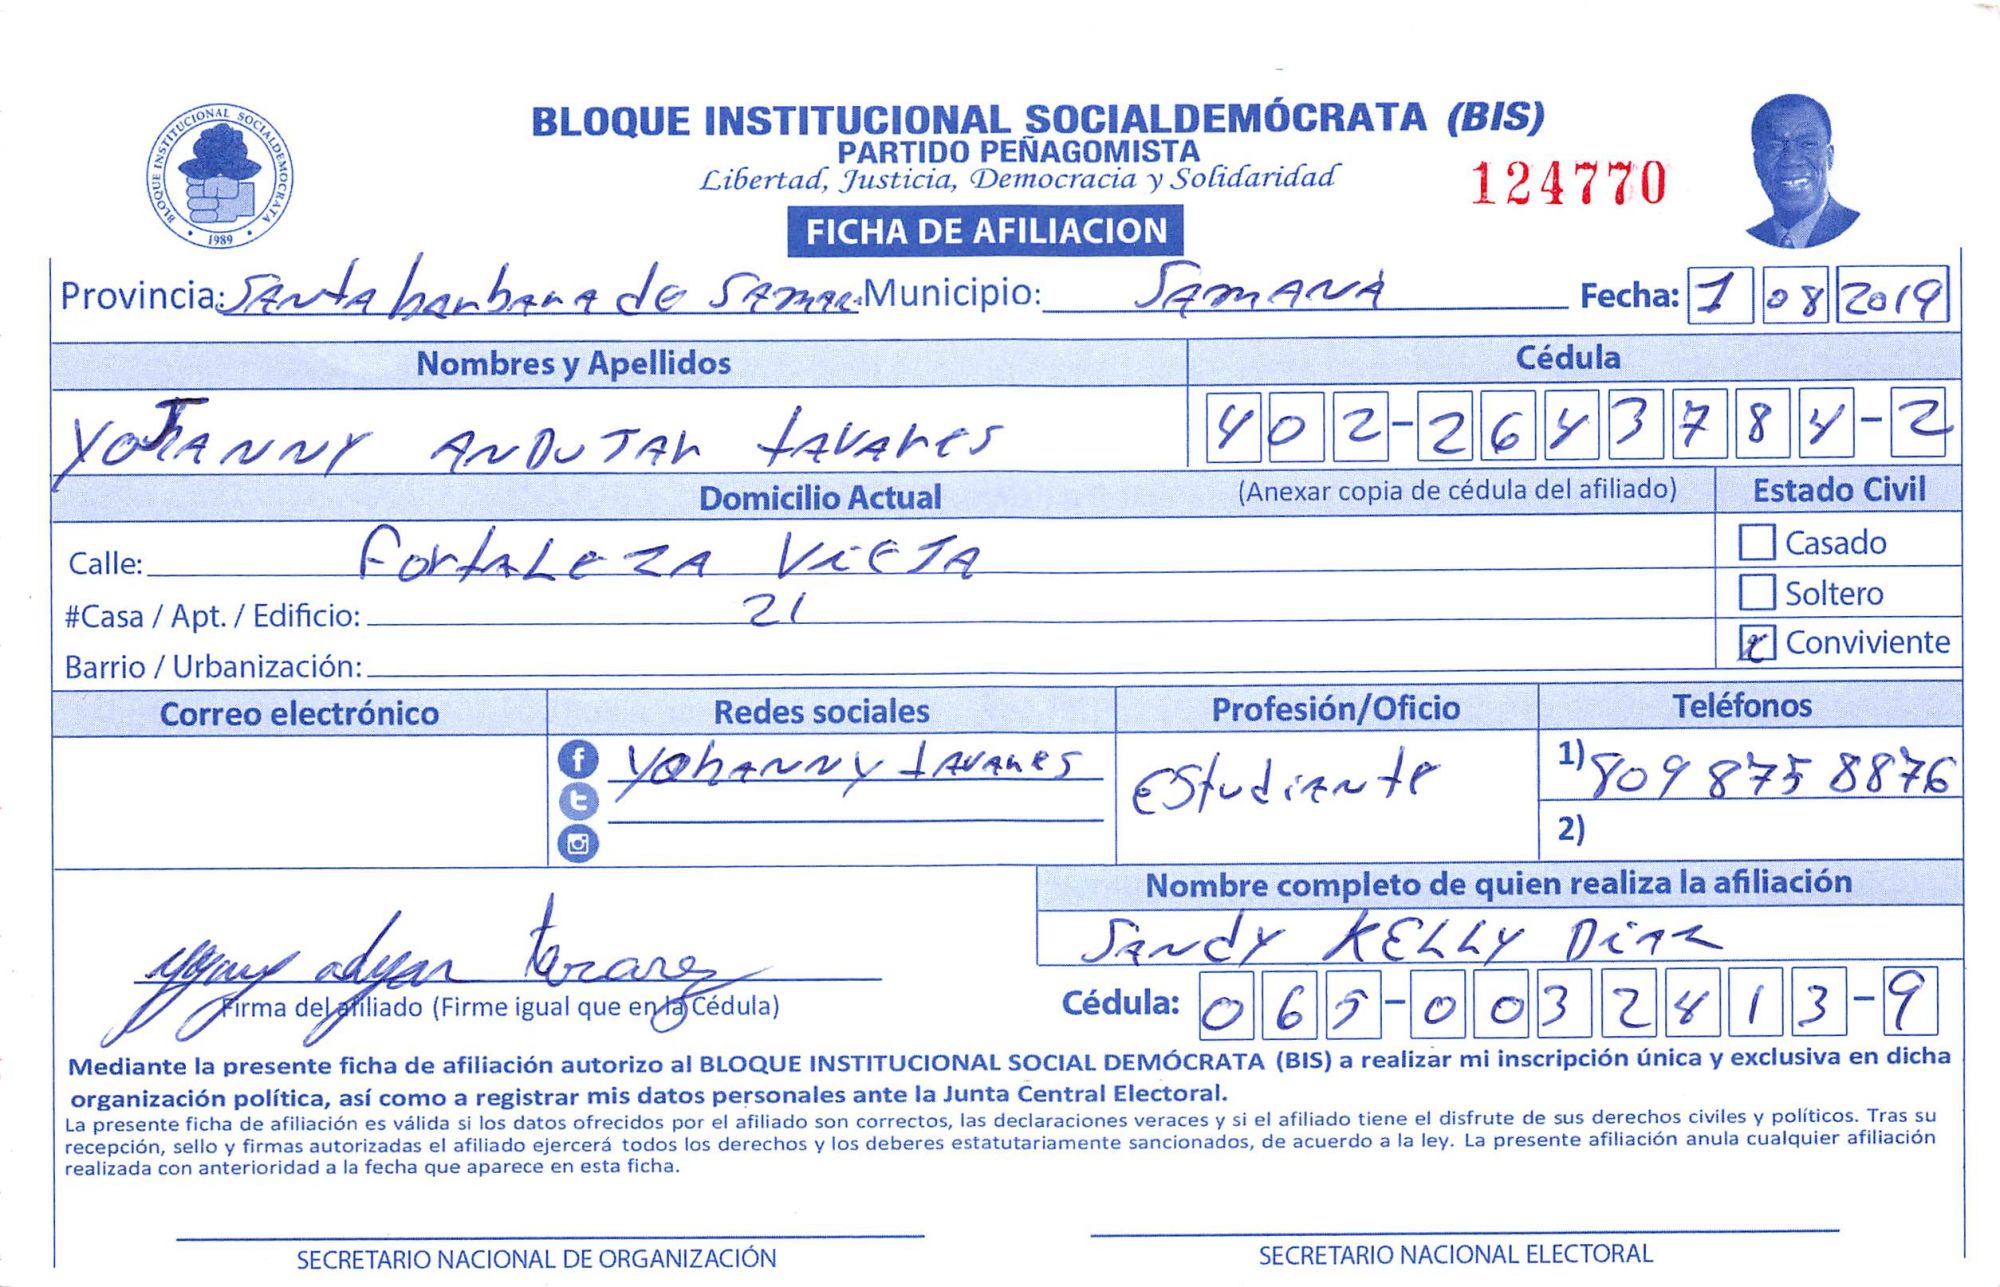 BLOQUE INSTITUCIONAL SOCIALDEMÓCRATA (BIS)
PARTIDO PEÑAGOMISTA
Libertad, Justicia, Democracia y Solidaridad
124770
BLOQUE INSTITUCIONAL SOCIALDEMOCRATA
1989
FICHA DE AFILIACION
Provincia: Santa barbara de Municipio: SAMANA Fecha: 1 08 2019
Nombres y Apellidos Cédula
YOHANNY ANDUJAR TAVARES 402-2643784-2
Domicilio Actual (Anexar copia de cédula del afiliado) Estado Civil
Calle: Fortaleza Vieja Casado
#Casa / Apt. / Edificio: 21 Soltero
Barrio / Urbanización: x Conviviente
Correo electrónico Redes sociales Profesión/Oficio Teléfonos
Yohanny tavares Estudiante 1) 809 875 8876
2)
Nombre completo de quien realiza la afiliación
Sandy KELLY Diaz
Firma del afiliado (Firme igual que en la Cédula) Cédula: 065-0032413-9
Mediante la presente ficha de afiliación autorizo al BLOQUE INSTITUCIONAL SOCIAL DEMÓCRATA (BIS) a realizar mi inscripción única y exclusiva en dicha
organización política, así como a registrar mis datos personales ante la Junta Central Electoral.
La presente ficha de afiliación es válida si los datos ofrecidos por el afiliado son correctos, las declaraciones veraces y si el afiliado tiene el disfrute de sus derechos civiles y políticos. Tras su
recepción, sello y firmas autorizadas el afiliado ejercerá todos los derechos y los deberes estatutariamente sancionados, de acuerdo a la ley. La presente afiliación anula cualquier afiliación
realizada con anterioridad a la fecha que aparece en esta ficha.
SECRETARIO NACIONAL DE ORGANIZACIÓN SECRETARIO NACIONAL ELECTORAL